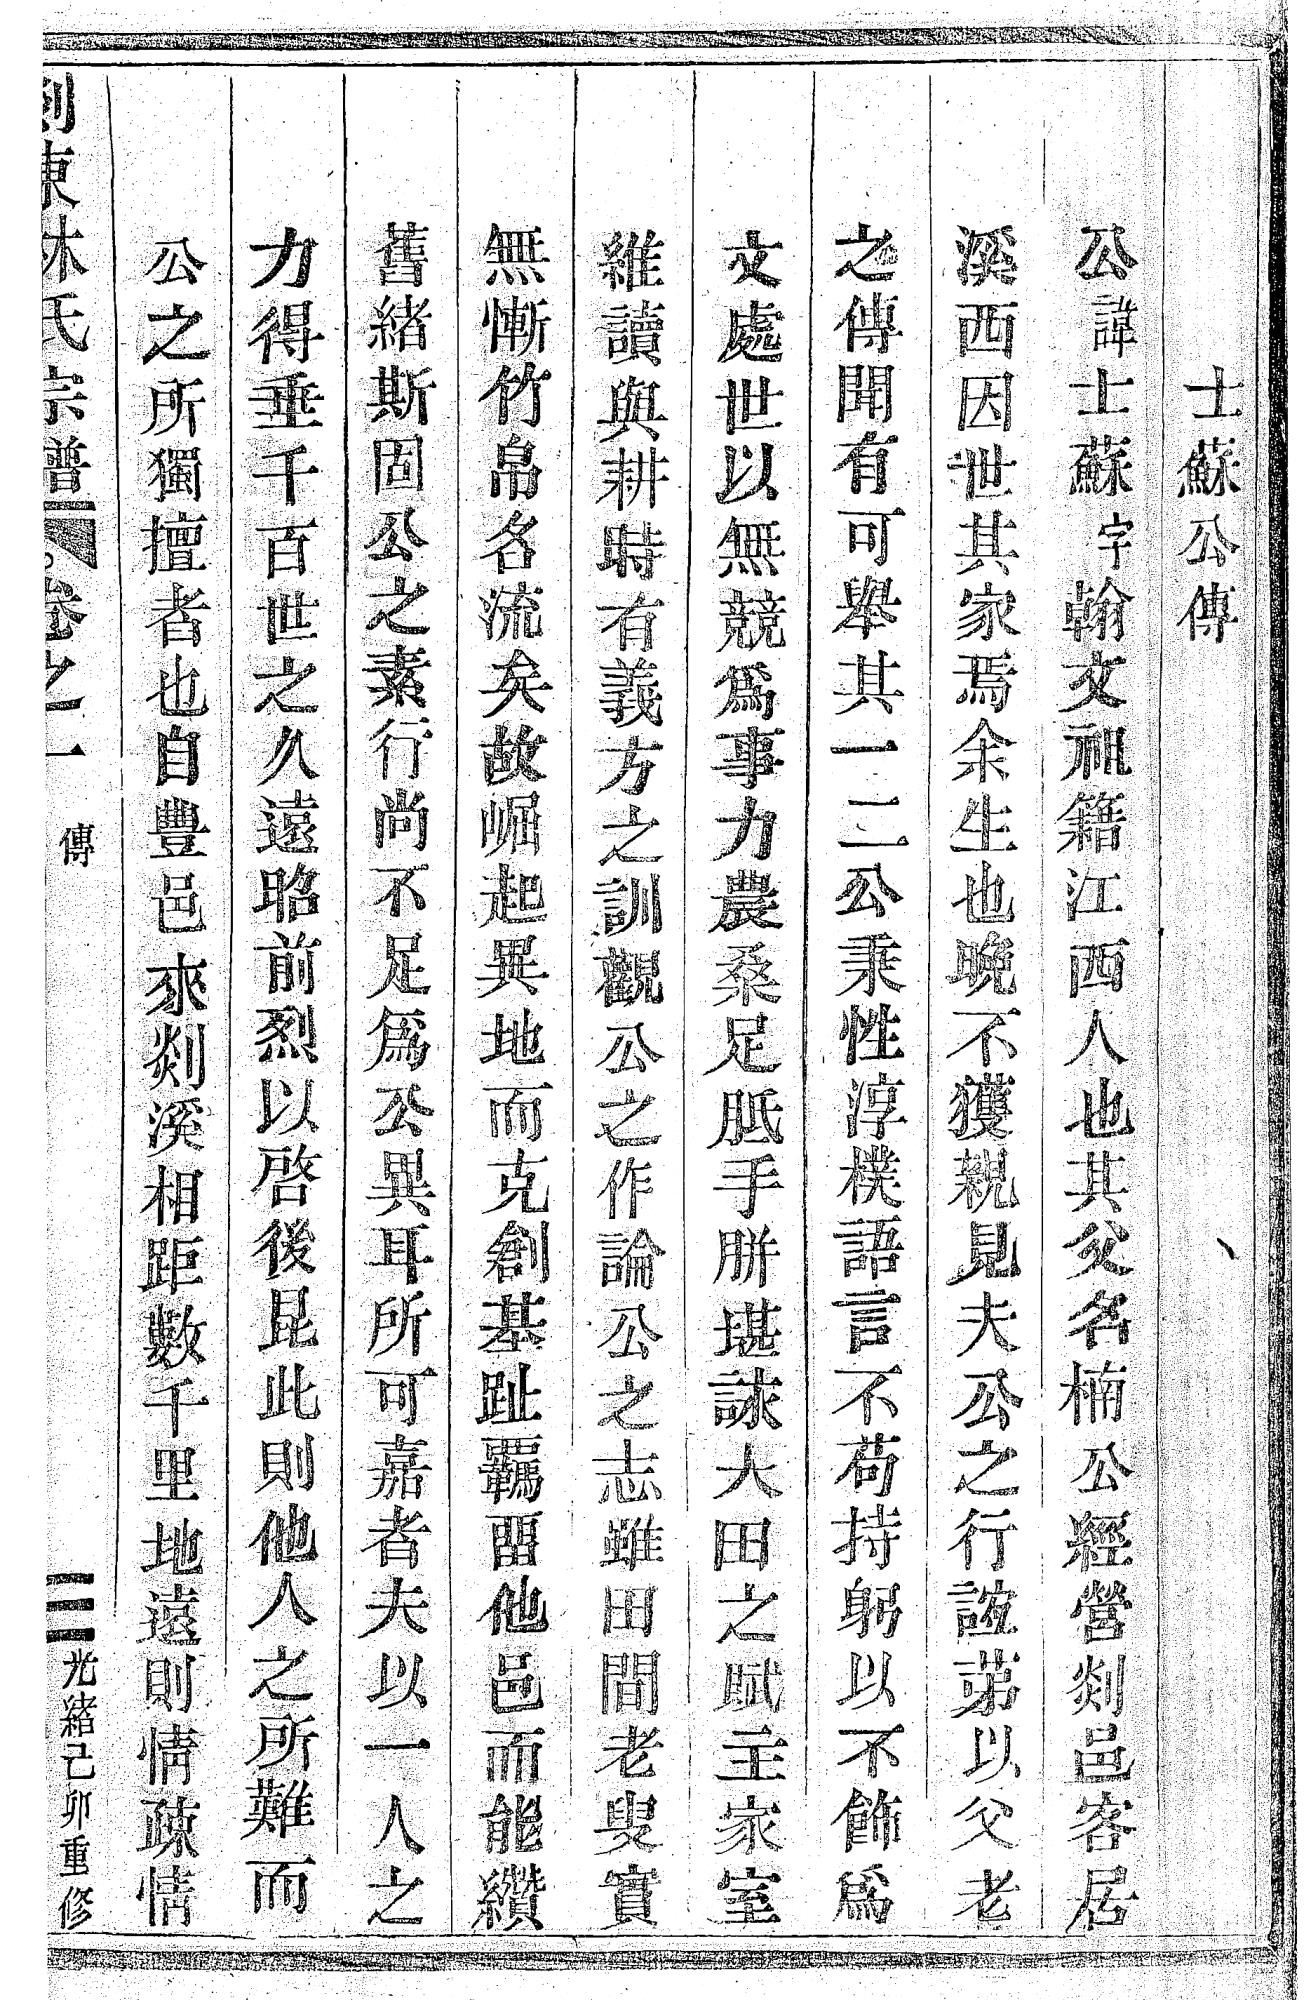 士蘇公傳
公諱士蘇字翰文祖籍江西人也其父名楠公經營剡邑客居
溪西因世其家焉余生也晚不獲親見夫公之行誼第以父老
之傳聞有可舉其一二公秉性淳樸語言不苟持躬以不飾爲
文處世以無競爲事力農桑足胝手胼堪詠大田之賦主家室
維讀與耕時有義方之訓觀公之作論公之志雖田間老叟實
無慚竹帛名流矣故崛起異地而克創基趾羈畱他邑而能纘
舊緒斯固公之素行尚不足爲公異耳所可嘉者夫以一人之
力得垂千百世之久遠昭前烈以啓後昆此則他人之所難而
公之所獨擅者也自豐邑來剡溪相距數千里地遠則情疎情
剡東林氏宗譜 卷之一 傳 三 光緒己卯重修